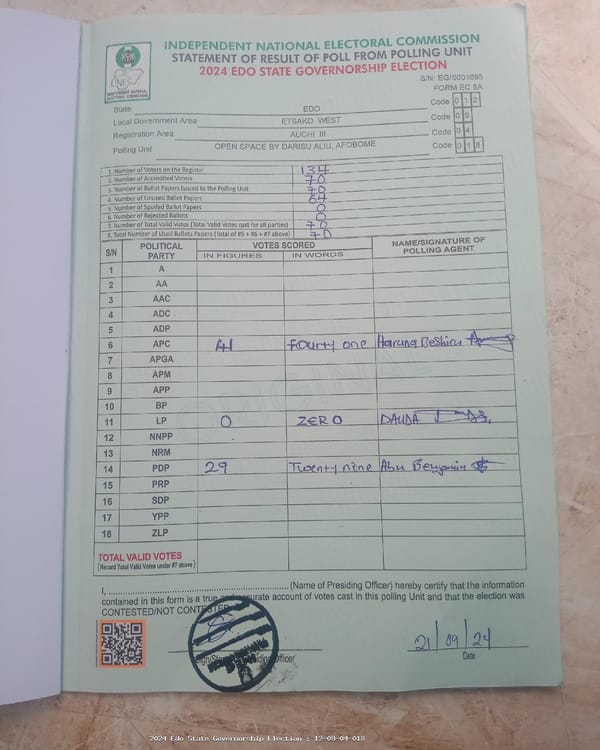 INDEPENDENT NATIONAL ELECTORAL COMMISSION
STATEMENT OF RESULT OF POLL FROM POLLING UNIT
2024 EDO STATE GOVERNORSHIP ELECTION
INDEPENDENT NATIONAL ELECTORAL COMMISSION
S/N: EG/0001695
FORM EC 8A
State EDO Code 0 1 2
Local Government Area ETSAKO WEST Code 0 9
Registration Area AUCHI III Code 0 4
Polling Unit OPEN SPACE BY DARISU ALIU, AFOBOME Code 0 1 8
1. Number of Voters on the Register 134
2. Number of Accredited Voters 70
3. Number of Ballot Papers Issued to the Polling Unit 70
4. Number of Unused Ballot Papers 64
5. Number of Spoiled Ballot Papers 0
6. Number of Rejected Ballots 0
7. Number of Total Valid Votes (Total Valid Votes cast for all parties) 70
8. Total Number of Used Ballots Papers (Total of #5 + #6 + #7 above) 70
S/N POLITICAL PARTY VOTES SCORED NAME/SIGNATURE OF POLLING AGENT
IN FIGURES IN WORDS
1 A
2 AA
3 AAC
4 ADC
5 ADP
6 APC 41 Fourty one Haruna Beshiru
7 APGA
8 APM
9 APP
10 BP
11 LP 0 ZERO DAUDA
12 NNPP
13 NRM
14 PDP 29 Twenty nine Abu Benjamin
15 PRP
16 SDP
17 YPP
18 ZLP
TOTAL VALID VOTES
(Record Total Valid Votes under #7 above)
I, (Name of Presiding Officer) hereby certify that the information
contained in this form is a true accurate account of votes cast in this polling Unit and that the election was
CONTESTED/NOT CONTESTED
21/09/24
Officer Date
2024 Edo State Governorship Election : 12-09-04-018